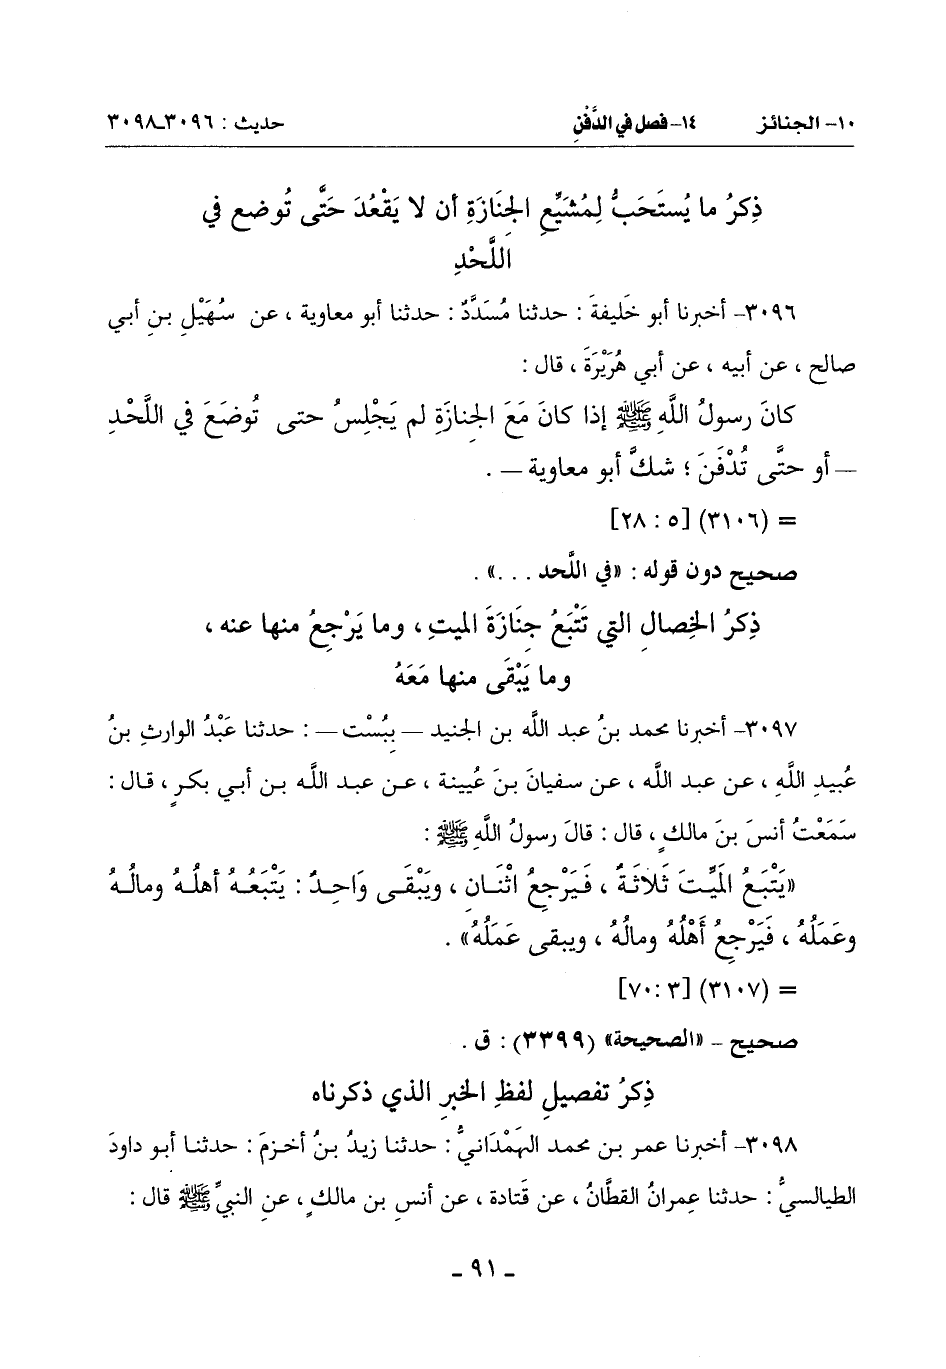 ١٠- الجنائز ١٤- فصل في الدَّفْنِ حديث : ٣٠٩٦ـ٣٠٩٨
ذِكرُ ما يُستَحَبُّ لِمُشَيِّعِ الجِنَازَةِ أن لا يَقْعُدَ حَتَّى تُوضع في
اللَّحْدِ
٣٠٩٦- أخبرنا أبو خَليفةَ : حدثنا مُسَدَّدٌ : حدثنا أبو معاوية ، عن سُهَيْلِ بنِ أبي
صالح ، عن أبيه ، عن أبي هُرَيْرَةَ ، قال :
كانَ رسولُ اللَّهِ ﷺ إذا كانَ مَعَ الجِنازَةِ لم يَجْلِسُ حتى تُوضَعَ في اللَّحْدِ
— أو حتَّى تُدْفَنَ ؛ شكَّ أبو معاوية — .
= (٣١٠٦) [٥ : ٢٨]
صحيح دون قوله : «في اللَّحد . . .» .
ذِكرُ الخِصالِ التي تَتْبَعُ جِنَازَةَ الميتِ ، وما يَرْجِعُ منها عنه ،
وما يَبْقَى منها مَعَهُ
٣٠٩٧- أخبرنا محمد بنُ عبد اللَّه بن الجنيد — بِبُسْت — : حدثنا عَبْدُ الوارثِ بنُ
عُبيدِ اللَّهِ ، عن عبد اللَّه ، عن سفيانَ بنَ عُيينة ، عن عبد اللَّه بن أبي بكرٍ ، قال :
سَمَعْتُ أنسَ بنَ مالكٍ ، قال : قالَ رسولُ اللَّهِ ﷺ :
«يَتْبَعُ المَيِّتَ ثَلاثَةٌ ، فَيَرْجِعُ اثْنَانِ ، ويَبْقَى وَاحِدٌ : يَتْبَعُهُ أهلُهُ ومالُهُ
وعَمَلُهُ ، فَيَرْجِعُ أَهْلُهُ ومالُهُ ، ويبقى عَمَلُهُ» .
= (٣١٠٧) [٣ :٧٠]
صحيح - «الصحيحة» (٣٣٩٩) : ق .
ذِكرُ تفصيلِ لفظِ الخبرِ الذي ذكرناه
٣٠٩٨- أخبرنا عمر بن محمد الهَمْدَانيُّ : حدثنا زيدُ بنُ أخزمَ : حدثنا أبو داودَ
الطيالسيُّ : حدثنا عِمرانُ القطَّانُ ، عن قَتادة ، عن أنسِ بن مالكٍ ، عنِ النبيِّ ﷺ قال :
- ٩١ -